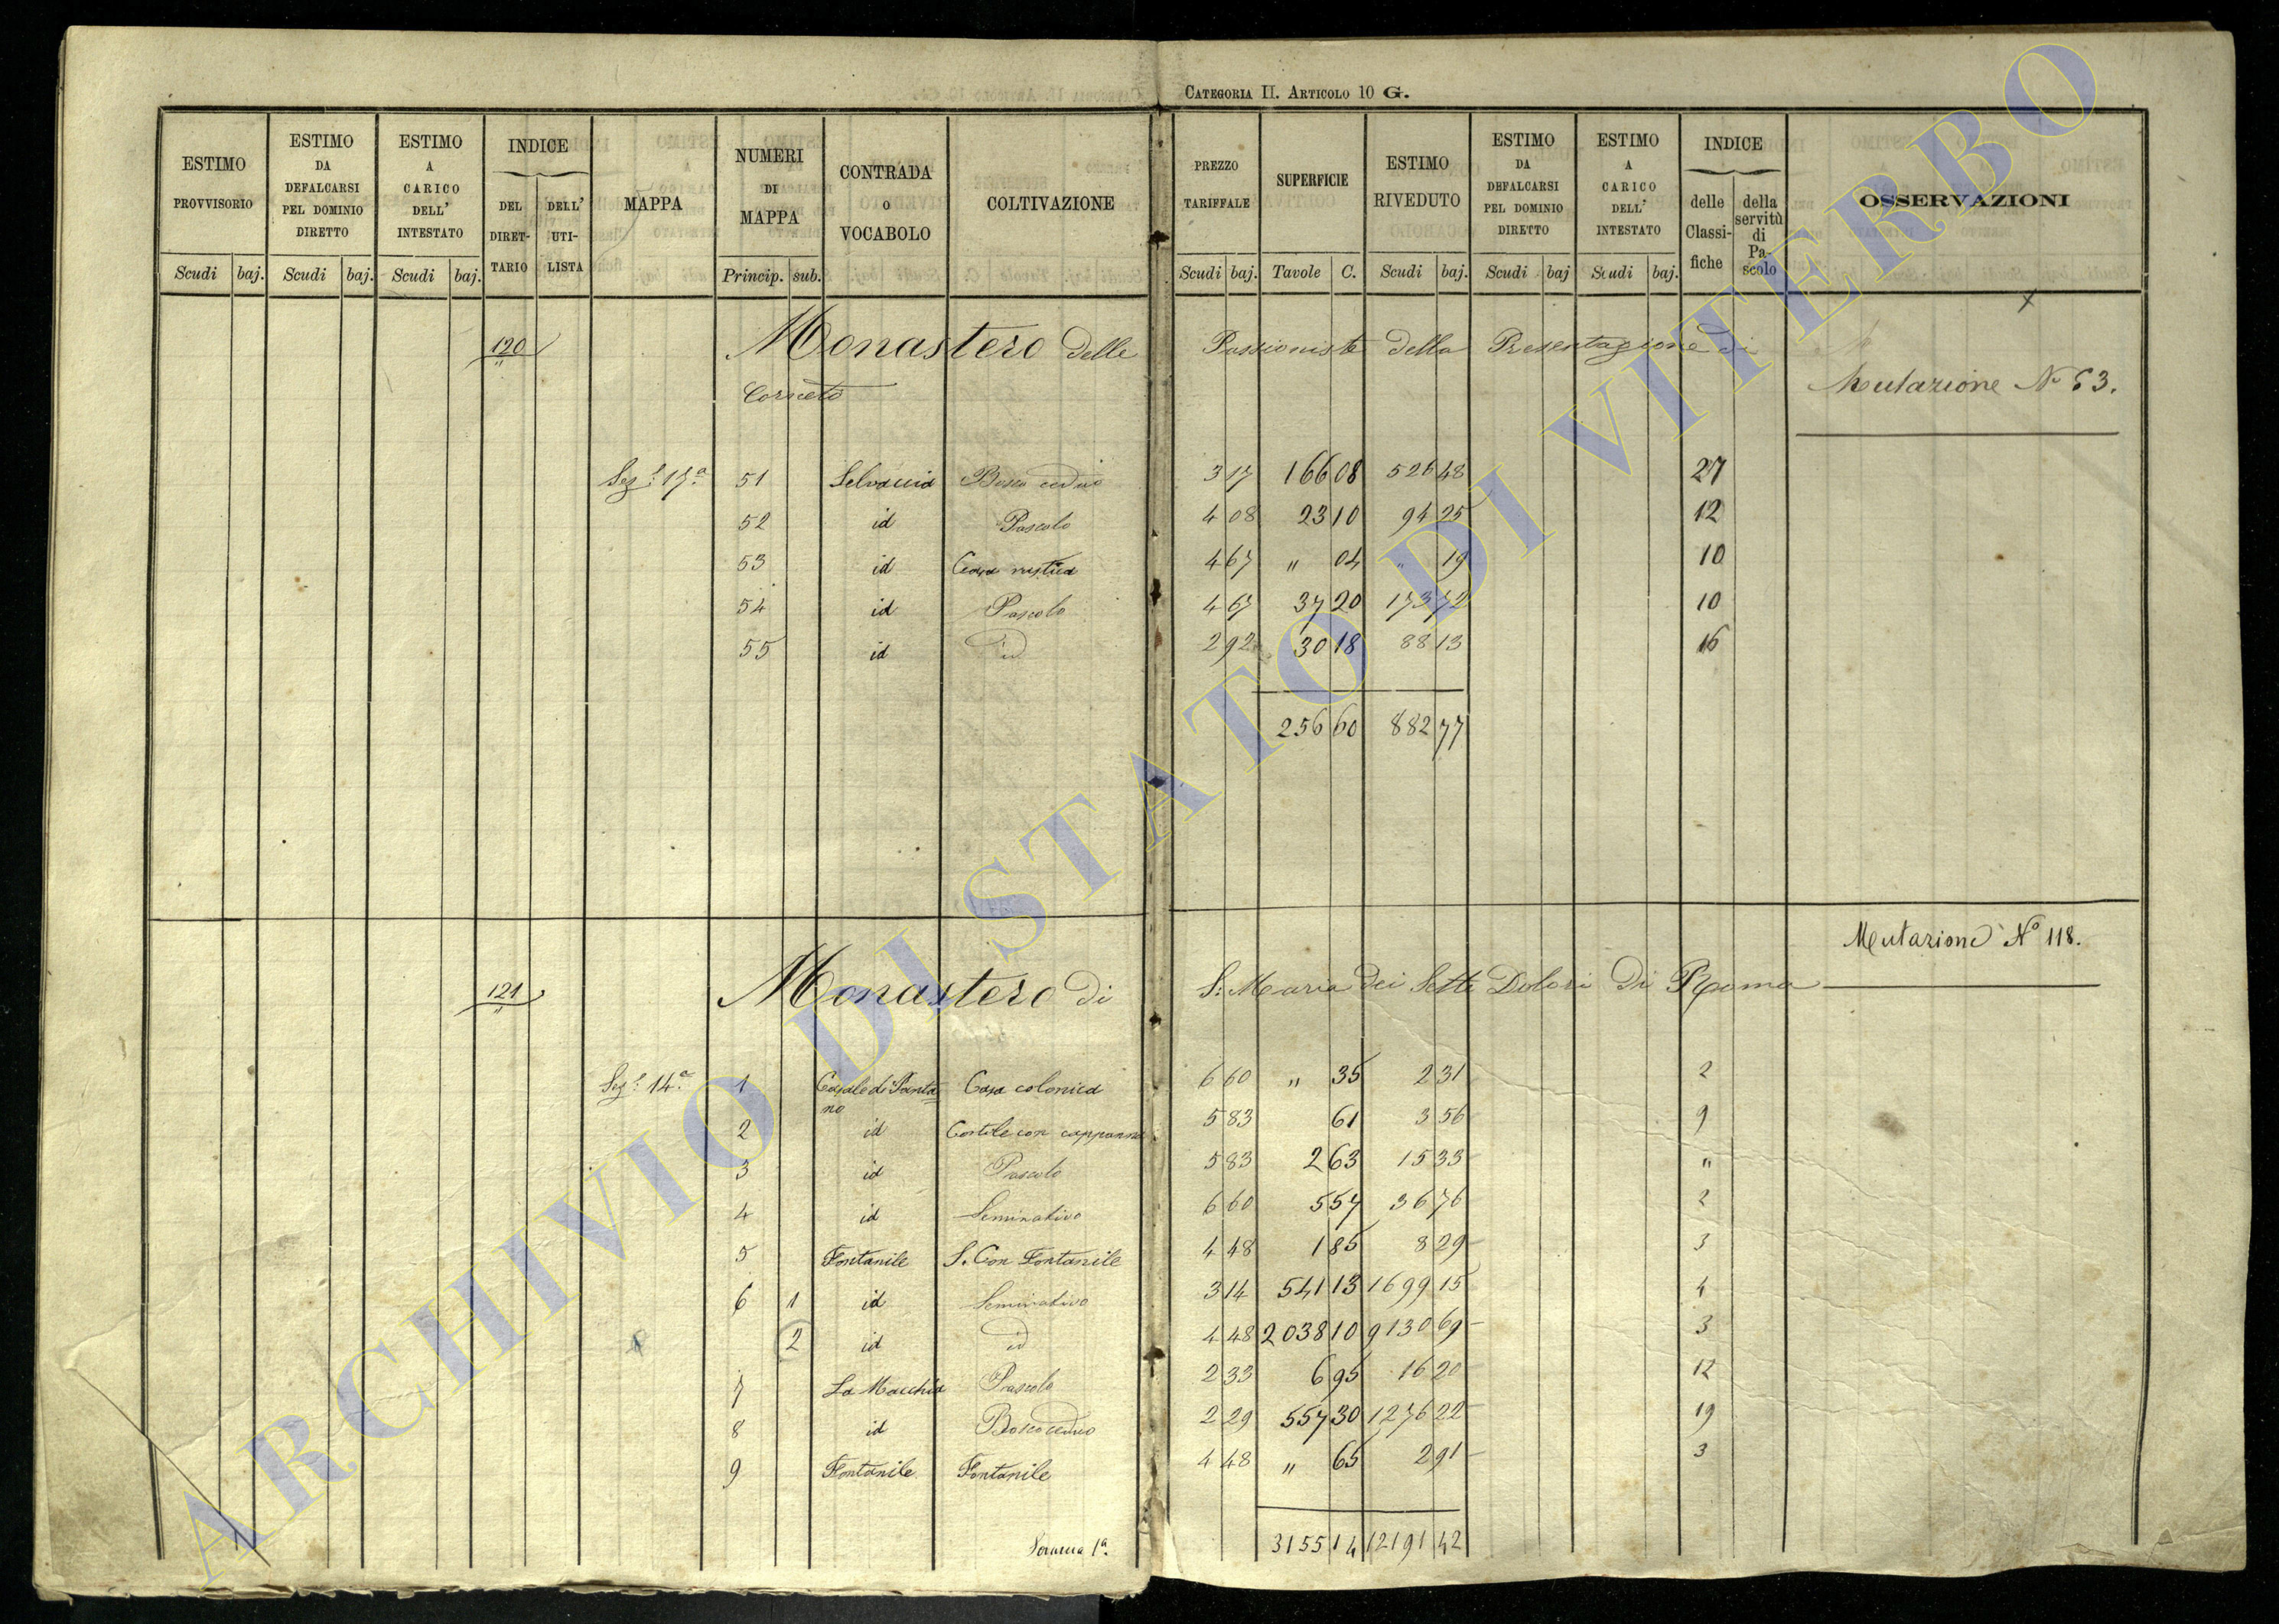 CATEGORIA II. ARTICOLO 10 G.
ESTIMO PROVVISORIO Scudi baj.
ESTIMO DA DEFALCARSI PEL DOMINIO DIRETTO Scudi baj.
ESTIMO A CARICO DELL' INTESTATO Scudi baj.
INDICE DEL DIRETTARIO DELL' UTILISTA
MAPPA
NUMERI DI MAPPA Princip. sub.
CONTRADA O VOCABOLO
COLTIVAZIONE
PREZZO TARIFFALE Scudi baj.
SUPERFICIE Tavole C.
ESTIMO RIVEDUTO Scudi baj.
ESTIMO DA DEFALCARSI PEL DOMINIO DIRETTO Scudi baj
ESTIMO A CARICO DELL' INTESTATO Scudi baj.
INDICE delle Classifiche della servitù di Pascolo
OSSERVAZIONI
120 Monastero delle Passioniste della Presentazione di
Corneto
Mutazione No 63.
Sez.e 17.a 51 Selvaccia Bosco ceduo 3 17 166 08 526 48 27
52 id Pascolo 4 08 23 10 94 25 12
53 id Casa rustica 4 67 " 04 " 19 10
54 id Pascolo 4 67 37 20 173 72 10
55 id id 2 92 30 18 88 13 16
256 60 882 77
Mutazione No 118.
121 Monastero di S. Maria dei Sette Dolori di Roma
Sez.e 14.a 1 Casale di Pantano Casa colonica 6 60 " 35 2 31 2
2 id Cortile con capanna 5 83 61 3 56 9
3 id Pascolo 5 83 2 63 15 33 "
4 id Seminativo 6 60 5 57 36 76 2
5 Fontanile S. Con Fontanile 4 48 1 85 8 29 3
6 1 id Seminativo 3 14 541 13 1699 15 4
2 id id 4 48 2038 10 9130 69 3
7 La Macchia Pascolo 2 33 6 95 16 20 12
8 id Bosco ceduo 2 29 557 30 1276 22 19
9 Fontanile Fontanile 4 48 " 65 2 91 3
Somma 1a. 3155 14 12191 42
ARCHIVIO DI STATO DI VITERBO